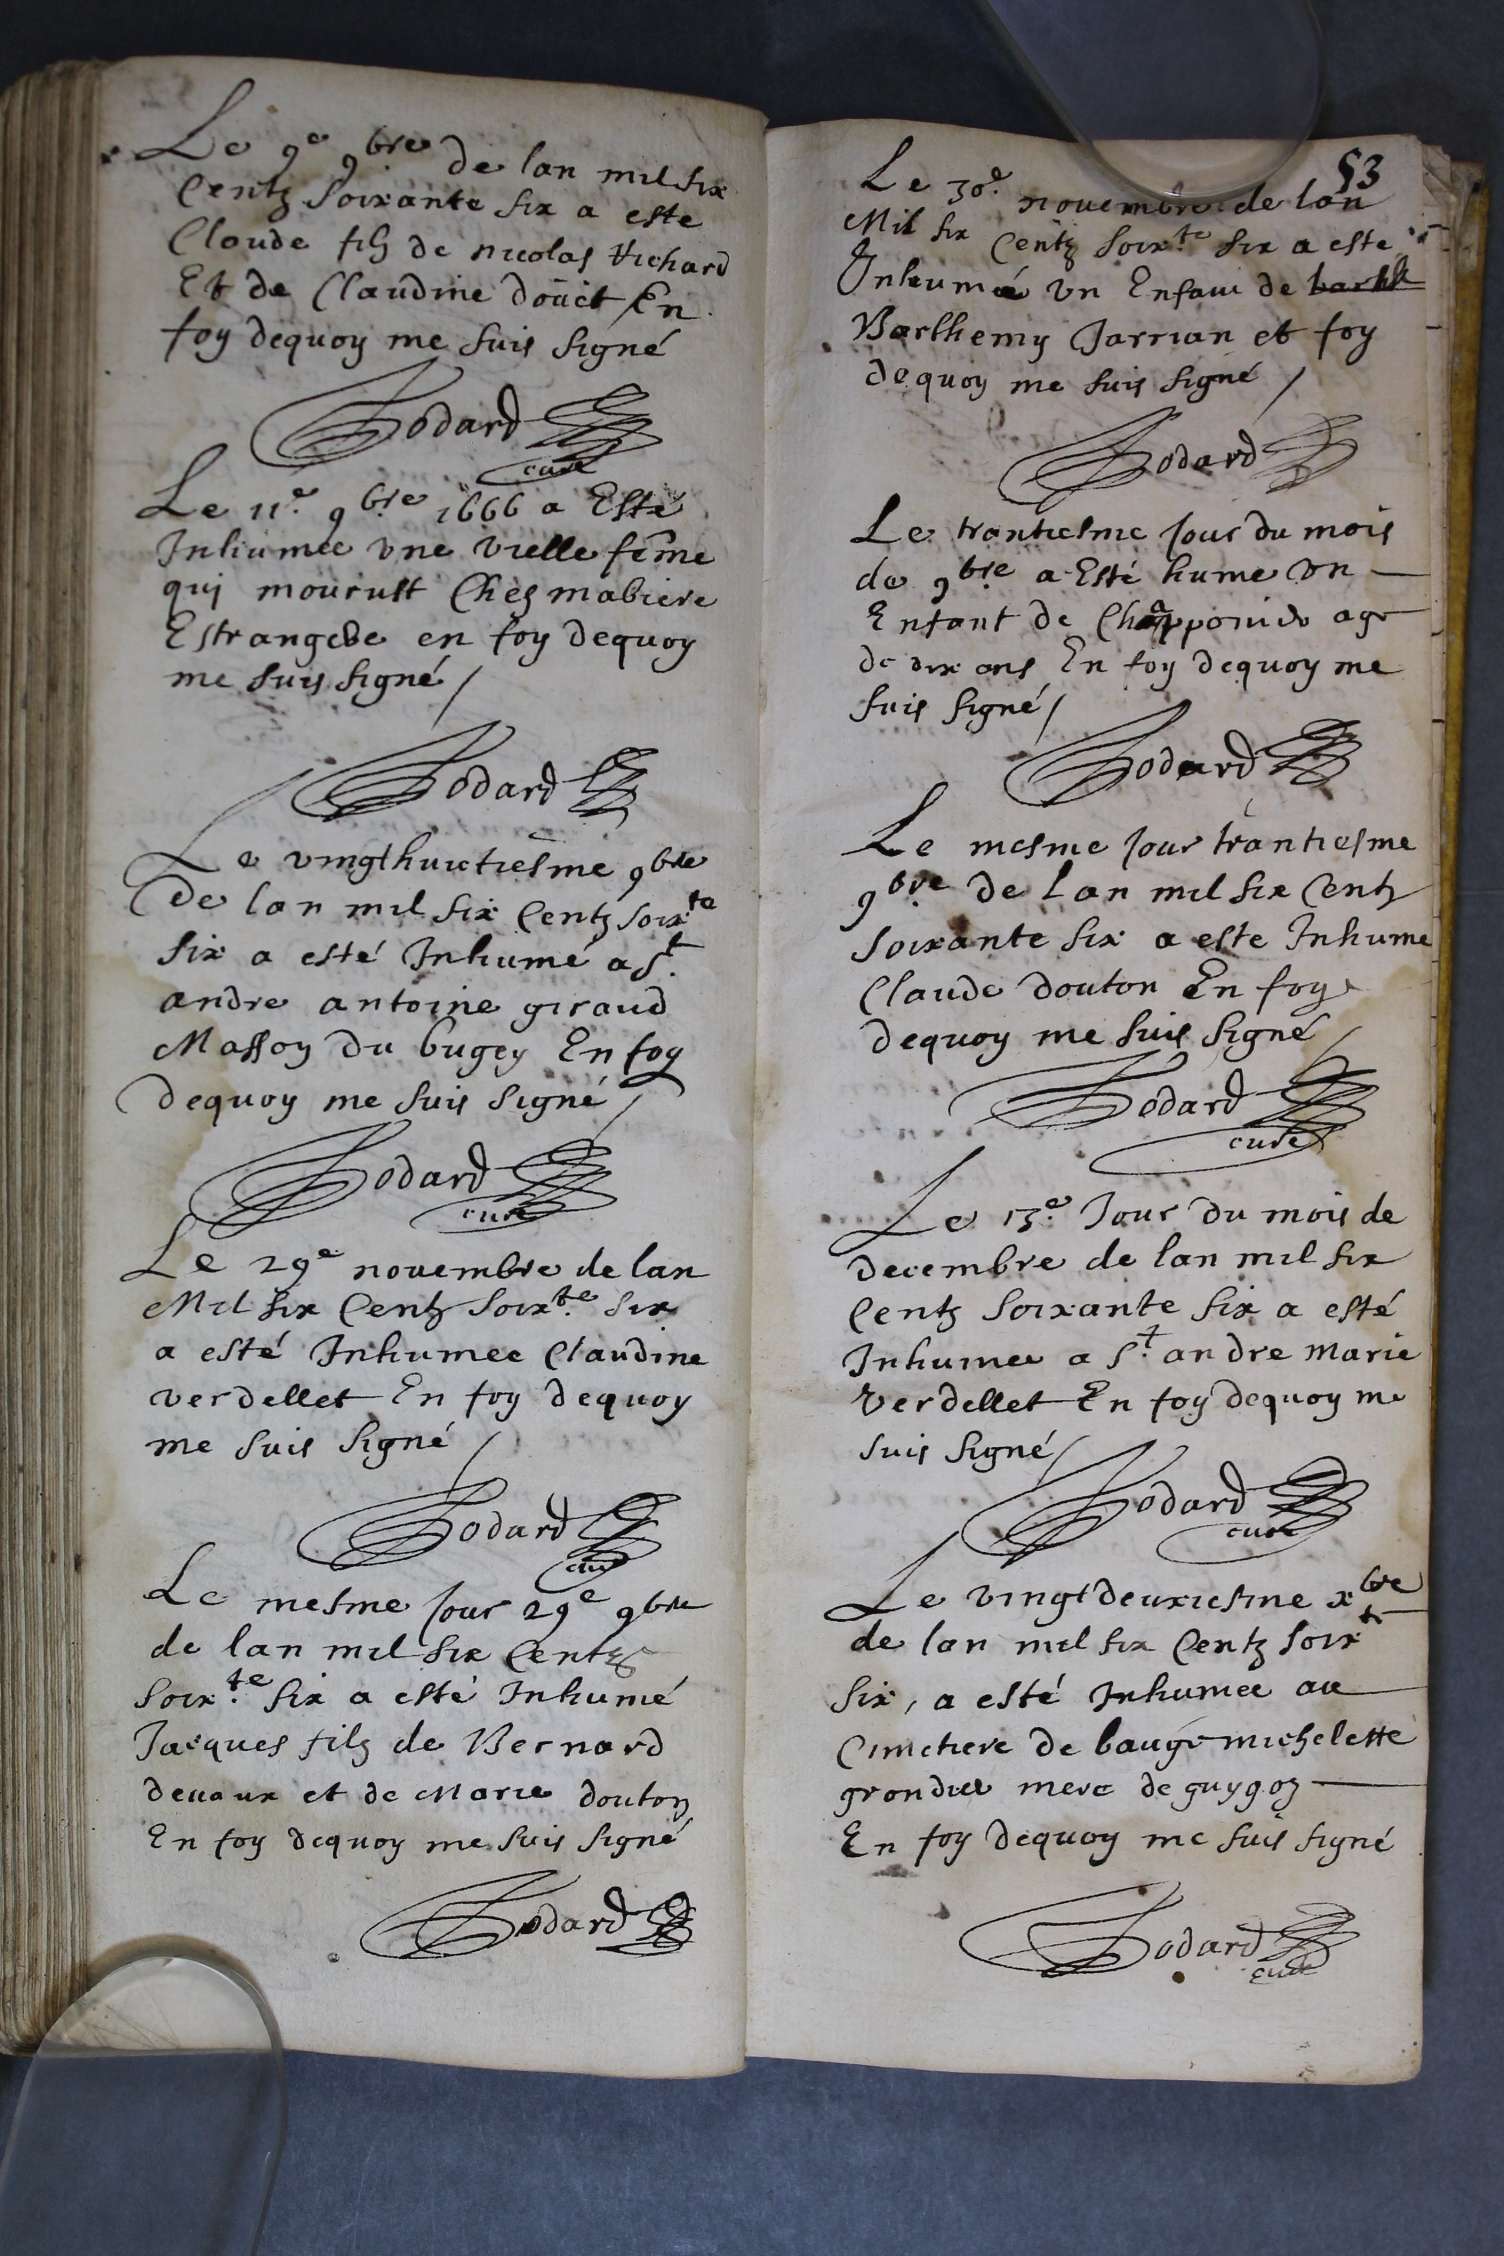 Le 9e 9bre de lan mil six
Centz Soixante six a este
Claude filz de nicolas Vichard
Et de Claudine doüct En
foy dequoy me suis signé
Godard
curé
Le 11e. 9bre 1666 a Esté
Inhumee vne vielle feme
qui mourust Chés mabiere
Estrangere en foy dequoy
me suis signé /
Godard
Le vingthuictiesme 9bre
de lan mil six Centz soixte
six a esté Inhumé a St.
andre antoine giraud
Masson du bugey En foy
dequoy me suis signé /
Godard
curé
Le 29e nouembre de lan
Mil six Centz soixte. six
a esté Inhumee Claudine
verdellet En foy dequoy
me suis signé /
Godard
curé
Le mesme jour 29e 9bre
de lan mil six Centz
soixte. six a esté Inhumé
Jacques filz de Bernard
deuaux et de Marie douton
En foy dequoy me suis signé
Godard
53
Le 30e. nouembre de lan
Mil six Centz soixte. six a este
Inhumé vn Enfant de
Barthemy Jarrian et foy
dequoy me suis signé /
Godard
Le trantiesme jour du mois
de 9bre a Esté hume vn
Enfant de age
de dix ans En foy dequoy me
suis signé /
Godard
Le mesme jour trantiesme
9bre de lan mil six Centz
soixante six a este Inhume
Claude douton En foy
dequoy me suis signé /
Godard
curé
Le 13e. Jour du mois de
decembre de lan mil six
Centz soixante six a esté
Inhumee a St. andre Marie
Verdellet En foy dequoy me
suis signé /
Godard
curé
Le vingtdeuxiesme xbre
de lan mil six Centz soixte
six, a esté Inhumee au
Cimetiere de baugé michelette
mere de guygoz
En foy dequoy me suis signé
Godard
curé